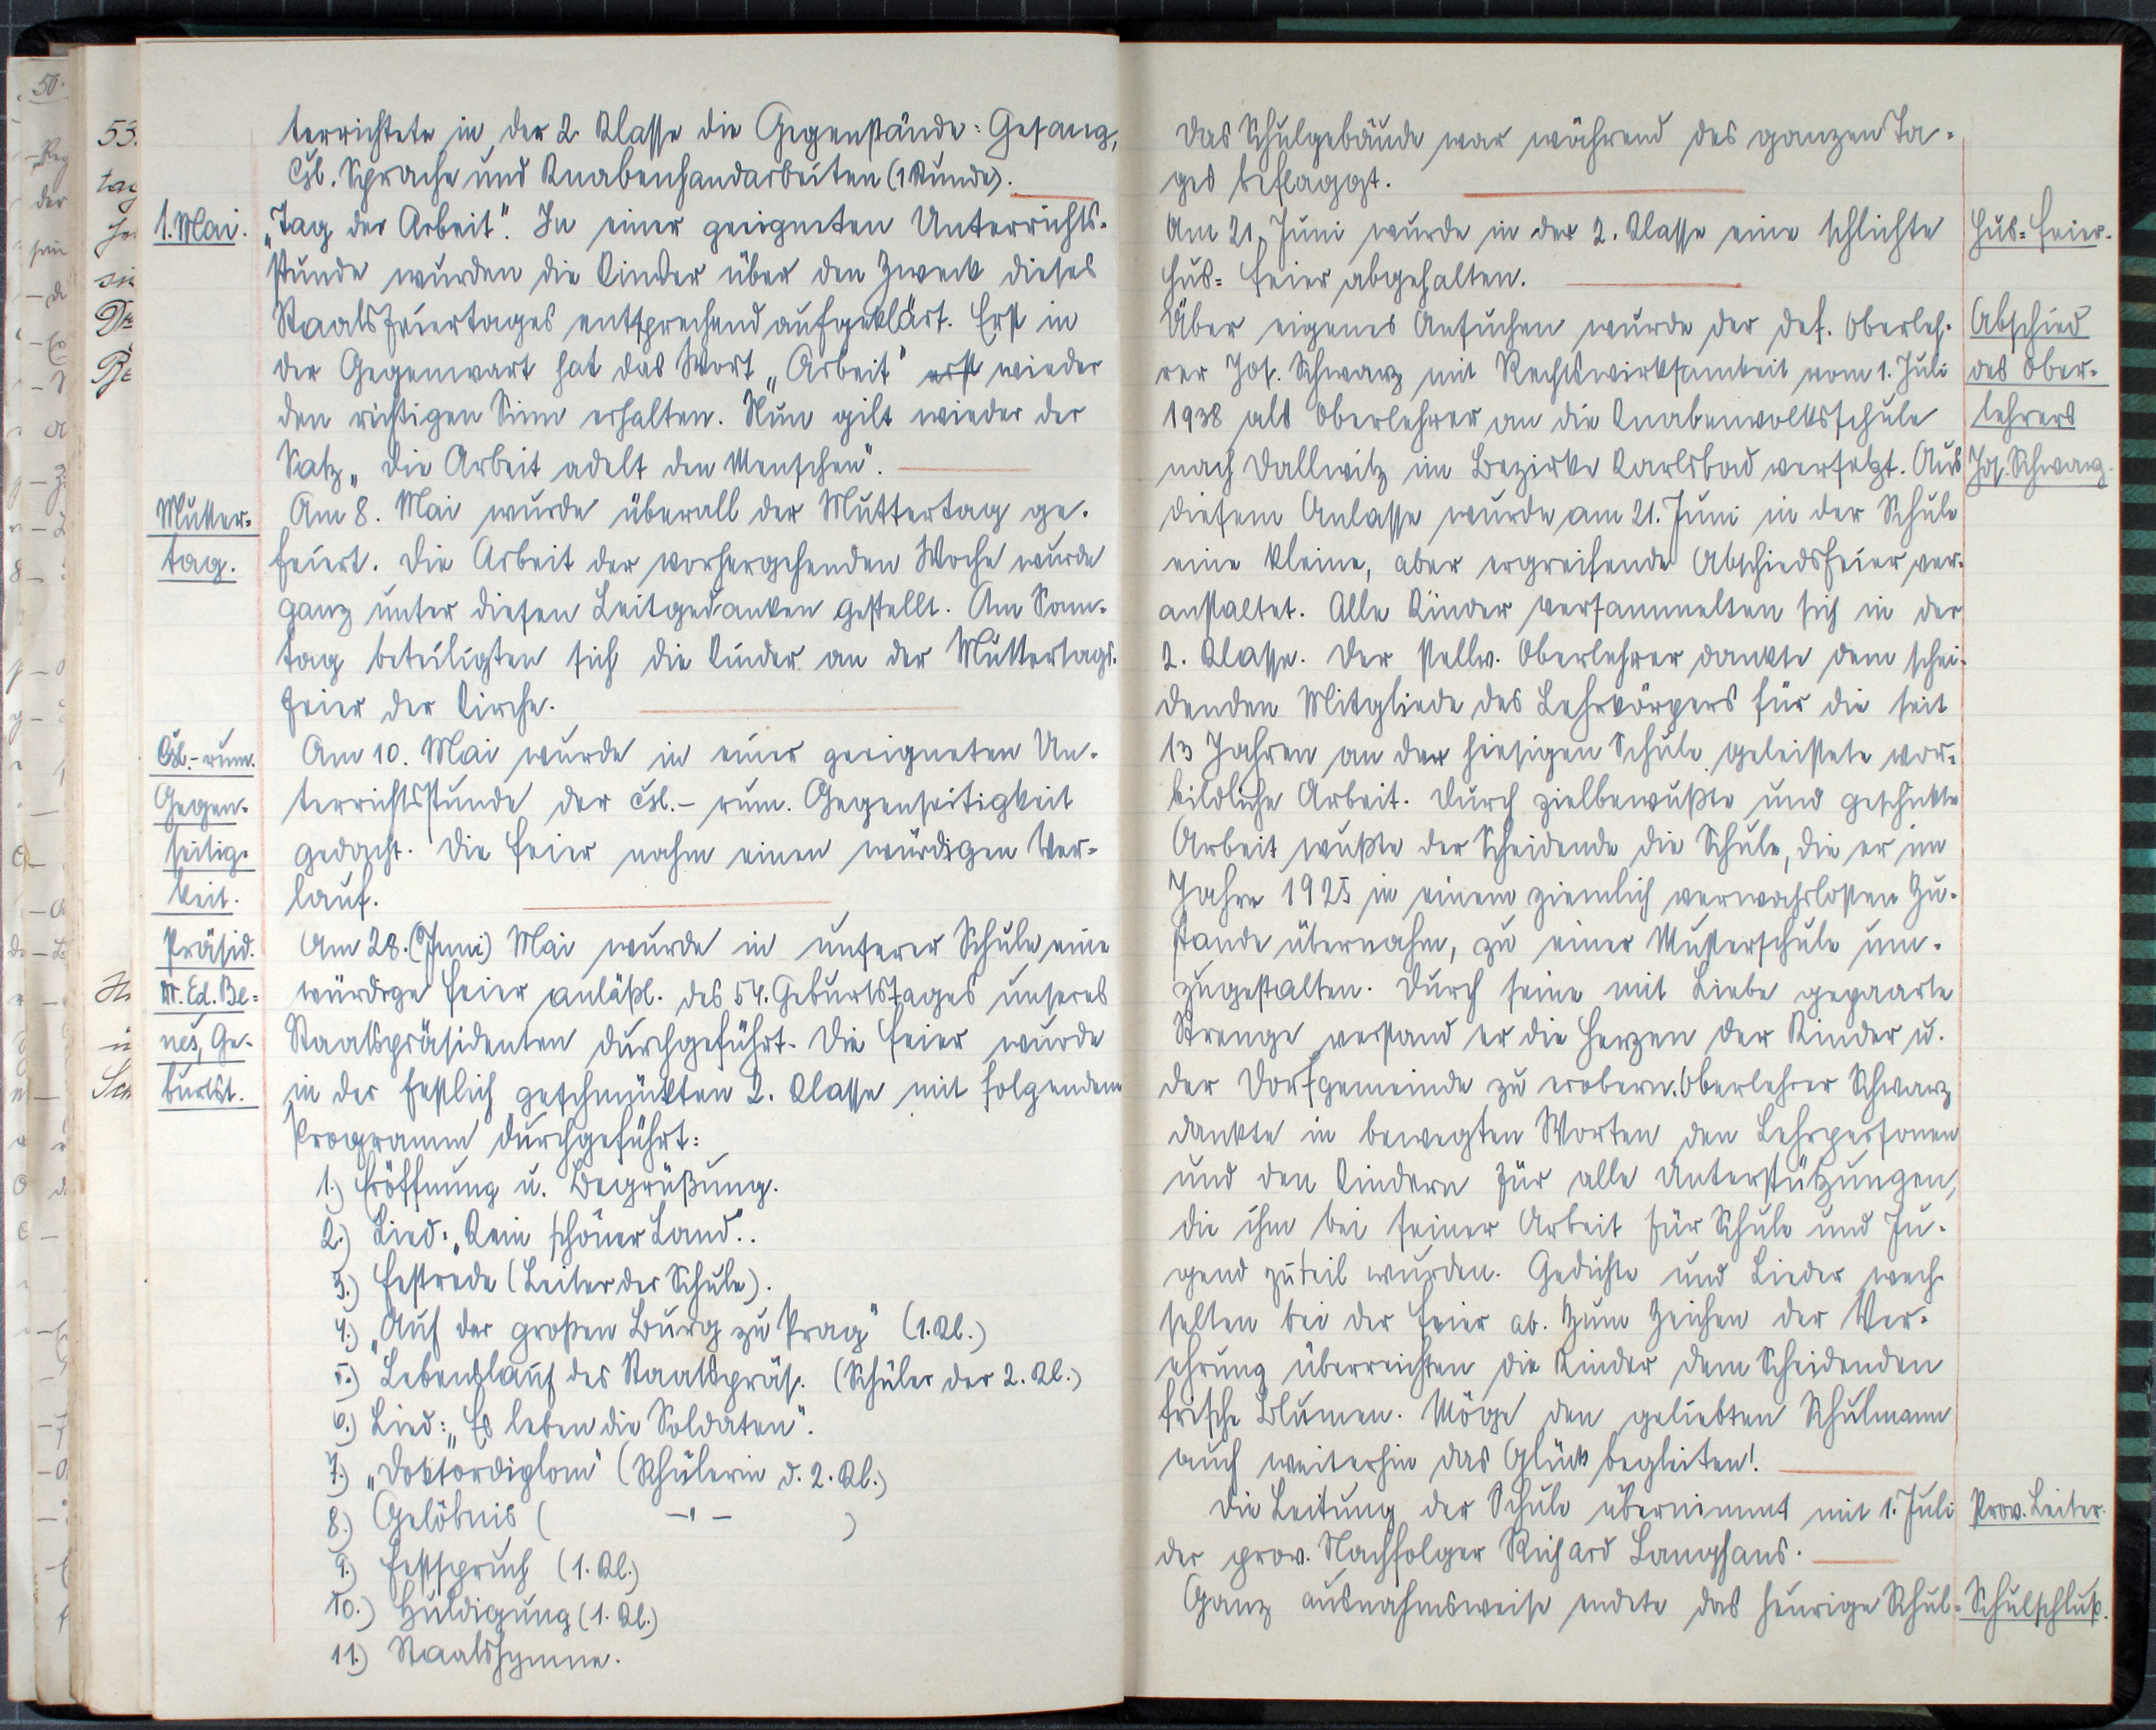 terrichtete in der 2. Klasse die Gegenstände: Gesang,
čsl. Sprache und Knabenhandarbeiten (1 Stunde).
1. Mai.
„Tag der Arbeit". In einer geeigneten Unterrichts-
stunde wurden die Kinder über den Zweck dieses
Staatsfeiertages entsprechend aufgeklärt. Erst in
der Gegenwart hat das Wort „Arbeit" erst wieder
den richtigen Sinn erhalten. Nun gilt wieder der
Satz „Die Arbeit adelt den Menschen".
Mutter-
tag.
Am 8. Mai wurde überall der Muttertag ge-
feiert. Die Arbeit der vorhergehenden Woche wurde
ganz unter diesen Leitgedanken gestellt. Am Sonn-
tag beteiligten sich die Kinder an der Muttertags-
feier der Kirche.
Čsl.-rum.
Gegen-
seitig-
keit.
Am 10. Mai wurde in einer geeigneten Un-
terrichtsstunde der čsl.-rum. Gegenseitigkeit
gedacht. Die Feier nahm einen würdigen Ver-
lauf.
Präsid.
Dr. Ed. Be-
neš, Ge-
burtst.
Am 28. (Juni) Mai wurde in unserer Schule eine
würdige Feier anläßl. des 54. Geburtstages unseres
Staatspräsidenten durchgeführt. Die Feier wurde
in der festlich geschmückten 2. Klasse mit folgendem
Programm durchgeführt:
1.) Eröffnung u. Begrüßung.
2.) Lied: „Kein schöner Land".
3.) Festrede (Leiter der Schule).
4.) „Auf der großen Burg zu Prag" (1. Kl.)
5.) Lebenslauf des Staatspräs. (Schüler der 2. Kl.)
6.) Lied: „Es leben die Soldaten".
7.) „Doktordiplom" (Schülerin d. 2. Kl.)
8.) Gelöbnis ( –"– )
9.) Festspruch (1. Kl.)
10.) Huldigung (1. Kl.)
11.) Staatshymne.
Das Schulgebäude war während des ganzen Ta-
ges beflaggt.
Hus-Feier.
Am 21. Juni wurde in der 2. Klasse eine schlichte
Hus-Feier abgehalten.
Abschied
des Ober-
lehrers
Jos. Schwarz.
Über eigenes Ansuchen wurde der def. Oberleh-
rer Jos. Schwarz mit Rechtswirksamkeit vom 1. Juli
1938 als Oberlehrer an die Knabenvolksschule
nach Dallwitz im Bezirke Karlsbad versetzt. Aus
diesem Anlasse wurde am 21. Juni in der Schule
eine kleine, aber ergreifende Abschiedsfeier ver-
anstaltet. Alle Kinder versammelten sich in der
2. Klasse. Der stellv. Oberlehrer dankte dem schei-
denden Mitgliede des Lehrkörpers für die seit
13 Jahren an der hiesigen Schule geleistete vor-
bildliche Arbeit. Durch zielbewußte und geschickte
Arbeit wußte der Scheidende die Schule, die er im
Jahre 1925 in einem ziemlich verwahrlosten Zu-
stande übernahm, zu einer Musterschule um-
zugestalten. Durch seine mit Liebe gepaarte
Strenge verstand er die Herzen der Kinder u.
der Dorfgemeinde zu erobern. Oberlehrer Schwarz
dankte in bewegten Worten den Lehrpersonen
und den Kindern für alle Unterstützungen,
die ihm bei seiner Arbeit für Schule und Ju-
gend zuteil wurden. Gedichte und Lieder wech-
selten bei der Feier ab. Zum Zeichen der Ver-
ehrung überreichten die Kinder dem Scheidenden
frische Blumen. Möge den geliebten Schulmann
auch weiterhin das Glück begleiten!
Prov. Leiter.
Die Leitung der Schule übernimmt mit 1. Juli
der prov. Nachfolger Richard Langhans.
Schulschluß.
Ganz ausnahmsweise endete das heurige Schul-